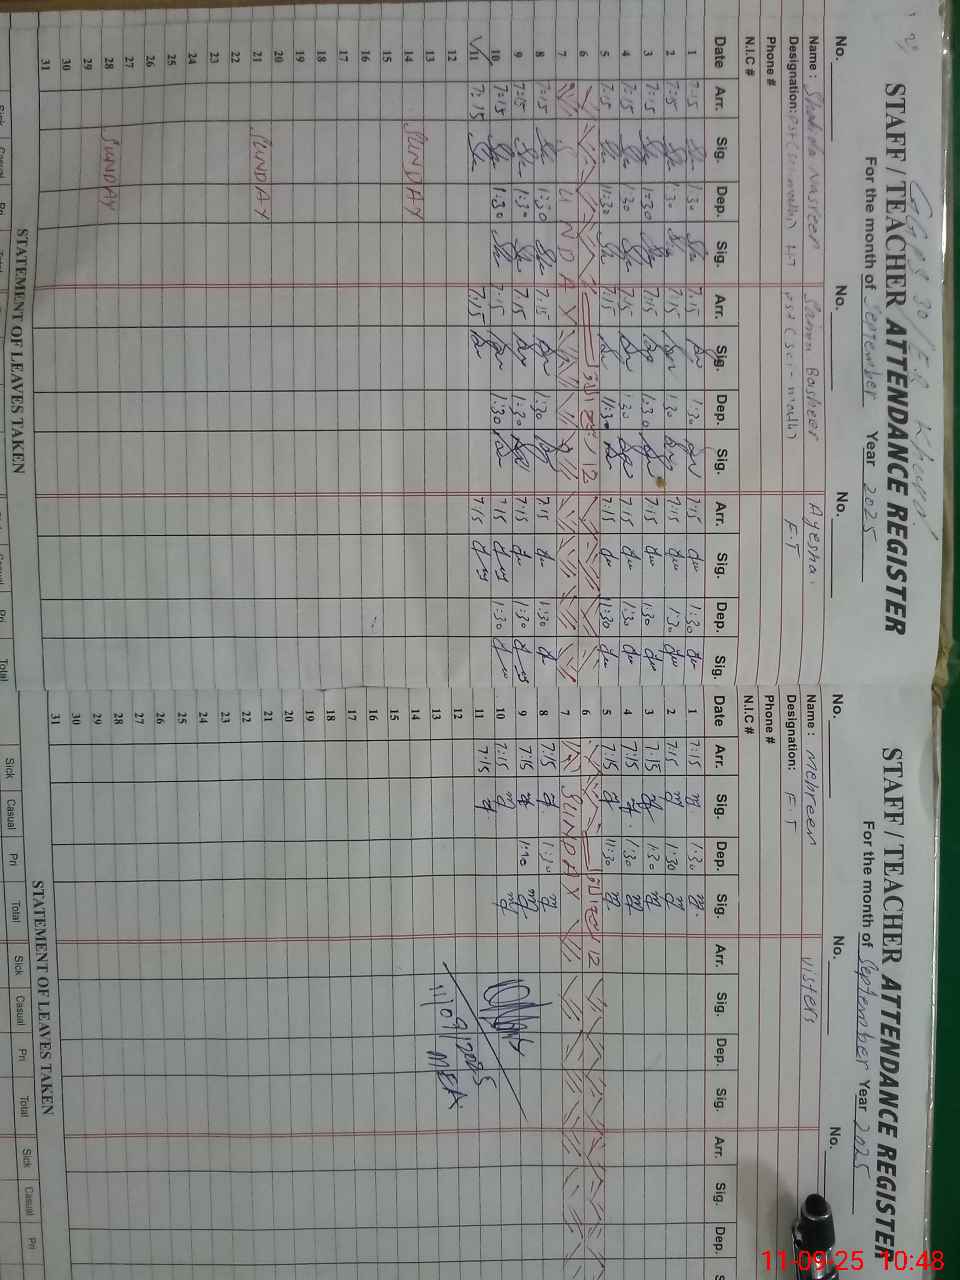 GGPS 30/E.B
STAFF / TEACHER ATTENDANCE REGISTER
For the month of September Year 2025
No. No. No.
Name : Shahida Nasreen Saima Basheer Ayesha
Designation: F.T
Phone #
N.I.C #
Date Arr. Sig. Dep. Sig. Arr. Sig. Dep. Sig. Arr. Sig. Dep. Sig.
1 7:15 1:30 7:15 1:30 7:15 1:30
2 7:15 1:30 7:15 1:30 7:15 1:30
3 7:15 1:30 7:15 1:30 7:15 1:30
4 7:15 1:30 7:15 1:30 7:15 1:30
5 7:15 11:30 7:15 11:30 7:15 11:30
6 12
7 SUNDAY
8 7:15 1:30 7:15 1:30 7:15 1:30
9 7:15 1:30 7:15 1:30 7:15 1:30
10 7:15 1:30 7:15 1:30 7:15 1:30
11 7:15 7:15 7:15
12
13
14 SUNDAY
15
16
17
18
19
20
21 SUNDAY
22
23
24
25
26
27
28 SUNDAY
29
30
31
STATEMENT OF LEAVES TAKEN
Sick Casual Pri Total
STAFF / TEACHER ATTENDANCE REGISTER
For the month of September Year 2025
No. No. No.
Name : Mehreen visters
Designation: F.T
Phone #
N.I.C #
Date Arr. Sig. Dep. Sig. Arr. Sig. Dep. Sig. Arr. Sig. Dep.
1 7:15 1:30
2 7:15 1:30
3 7:15 1:30
4 7:15 1:30
5 7:15 11:30
6 12
7 SUNDAY
8 7:15 1:30
9 7:15 1:30
10 7:15
11 7:15
12
13
14
15
16
17
18
19
20
21
22
23
24
25
26
27
28
29
30
31
11/09/2025
MEA
STATEMENT OF LEAVES TAKEN
Sick Casual Pri Total Sick Casual Pri Total Sick Casual Pri
11-09-25 10:48